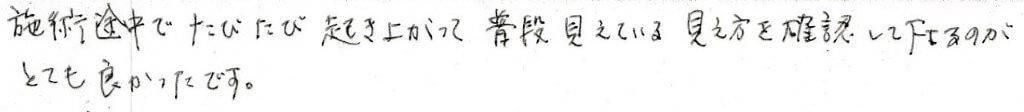 施術途中で たびたび 起き上がって 普段見えている 見え方を確認して下さるのが
とても良かったです。